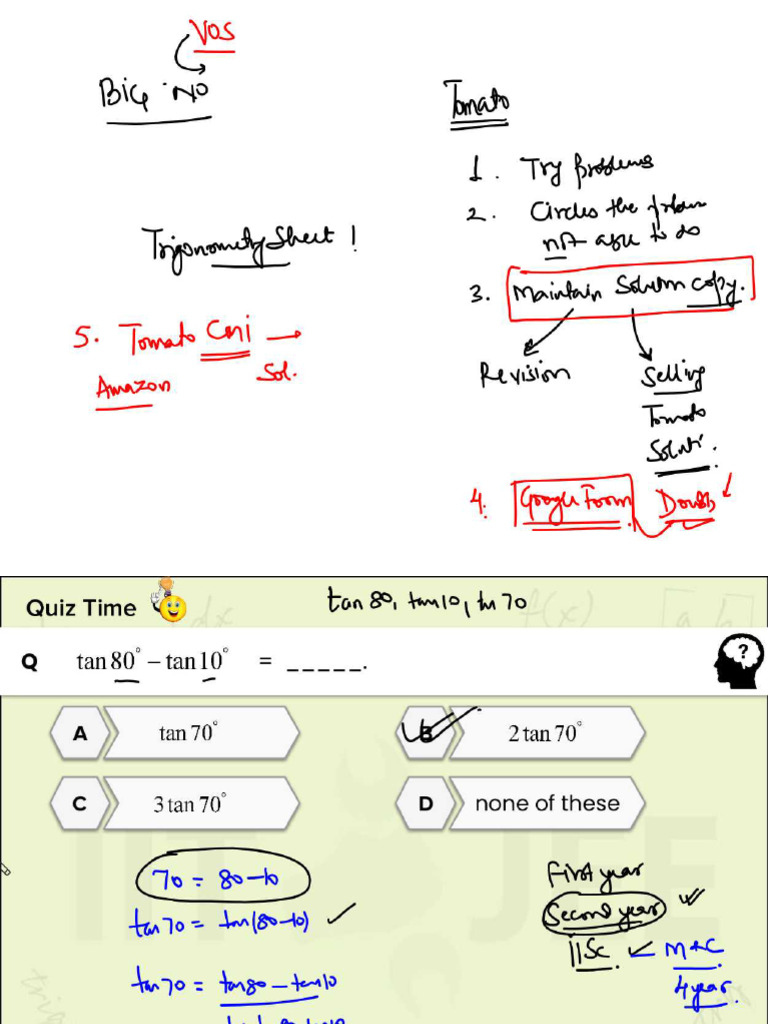 VOS
Big NO
Tomato
1. Try problems
2. Circles the problem
not able to do
Trigonometry Sheet !
3. Maintain Solution copy.
5. Tomato →
Amazon Sol.
Revision
Selling
Tomato
4. Google Form Doubts
Quiz Time
tan 80, tan 10, tan 70
Q tan 80° – tan 10° = _____.
?
A tan 70°
B 2 tan 70°
C 3 tan 70°
D none of these
70 = 80-10
tan 70 = tan(80-10)
tan 70 = tan 80 - tan 10
First year
Second year
IISc ← M & C
4 year.